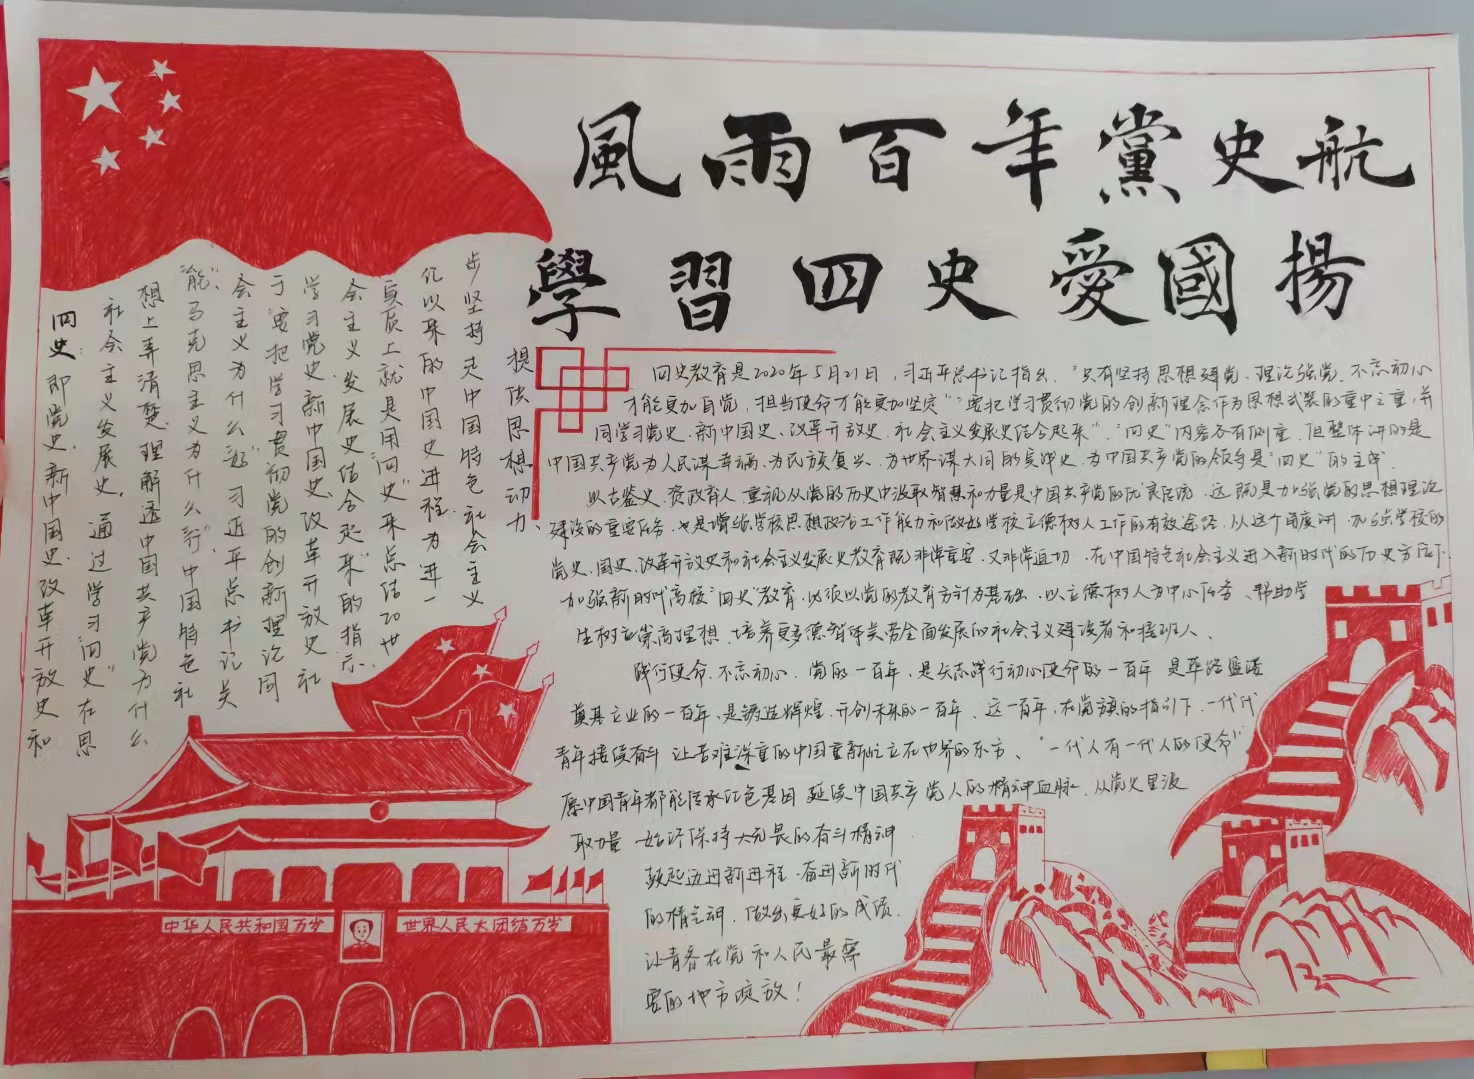 風雨百年黨史航
學習四史愛國揚
四史:即党史、新中国史、改革开放史和
社会主义发展史。通过学习"四史"在思
想上弄清楚、理解透中国共产党为什么
"能"、马克思主义为什么"行"、中国特色社
会主义为什么"好"。习近平总书记关
于"要把学习贯彻党的创新理论同
学习党史、新中国史、改革开放史、社
会主义发展史结合起来"的指示,
实质上就是用"四史"来总结20世
纪以来的中国史进程,为进一
步坚持走中国特色社会主义
提供思想动力.
四史教育是2020年5月21日,习近平总书记指出,"只有坚持思想建党、理论强党,不忘初心
才能更加自觉,担当使命才能更加坚定""要把学习贯彻党的创新理念作为思想武装的重中之重,并
同学习党史、新中国史、改革开放史、社会主义发展史结合起来"、"四史"内容各有侧重,但整体讲的是
中国共产党为人民谋幸福、为民族复兴、为世界谋大同的实践史,为中国共产党的领导是"四史"的主线.
以古鉴史,资政育人,重视从党的历史中汲取智慧和力量是中国共产党的优良传统,这既是加强党的思想理论
建设的重要任务,也是增强学校思想政治工作能力和做好学校立德树人工作的有效途径,从这个角度讲,加强学校的
党史、国史、改革开放史和社会主义发展史教育既非常重要,又非常迫切,在中国特色社会主义进入新时代的历史方位下,
加强新时代高校"四史"教育,必须以党的教育方针为基础,以立德树人为中心任务、帮助学
生树立崇高理想,培养更多德智体美劳全面发展的社会主义建设者和接班人、
践行使命,不忘初心,党的一百年,是矢志践行初心使命的一百年,是筚路蓝缕
奠基立业的一百年,是铸造辉煌、开创未来的一百年、这一百年,在党旗的指引下,一代代
青年接续奋斗,让苦难深重的中国重新屹立在世界的东方、"一代人有一代人的使命"
愿中国青年都能传承红色基因,延续中国共产党人的精神血脉,从党史里汲
取力量,始终保持大无畏的奋斗精神,
鼓起迈进新进程、奋进新时代
的精气神,做出更好的成绩,
让青春在党和人民最需
要的地方绽放!
中华人民共和国万岁
世界人民大团结万岁